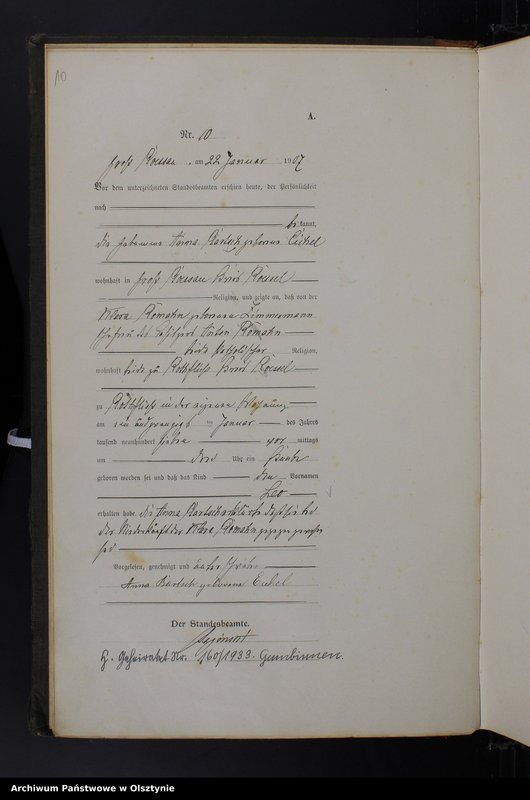 10
A.
Nr. 10
Groß Roessau, am 22 Januar 1907
Vor dem unterzeichneten Standesbeamten erschien heute, der Persönlichkeit
nach
be kannt,
die Hebamme Anna Bartsch geborene Eichel
wohnhaft in Groß Kreis Roessel
Religion, und zeigte an, daß von der
Klara Romahn geborene Zimmermann
Ehefrau des Anton Romahn
beide katholischer Religion,
wohnhaft beide zu Rothfließ Kreis Roessel
zu Rothfließ in der eigenen Wohnung
am ein und zwanzigsten Januar des Jahres
tausend neunhundert sieben vor mittags
um drei Uhr ein Knabe
geboren worden sei und daß das Kind den Vornamen
Leo
erhalten habe. die Anna Bartsch erklärte daß sie bei
der Niederkunft der Klara Romahn zugegen gewesen
sei
Vorgelesen, genehmigt und unterschrieben
Anna Bartsch geborene Eichel
Der Standesbeamte.
Geheiratet Nr. 160/1933. Gumbinnen.
Archiwum Państwowe w Olsztynie